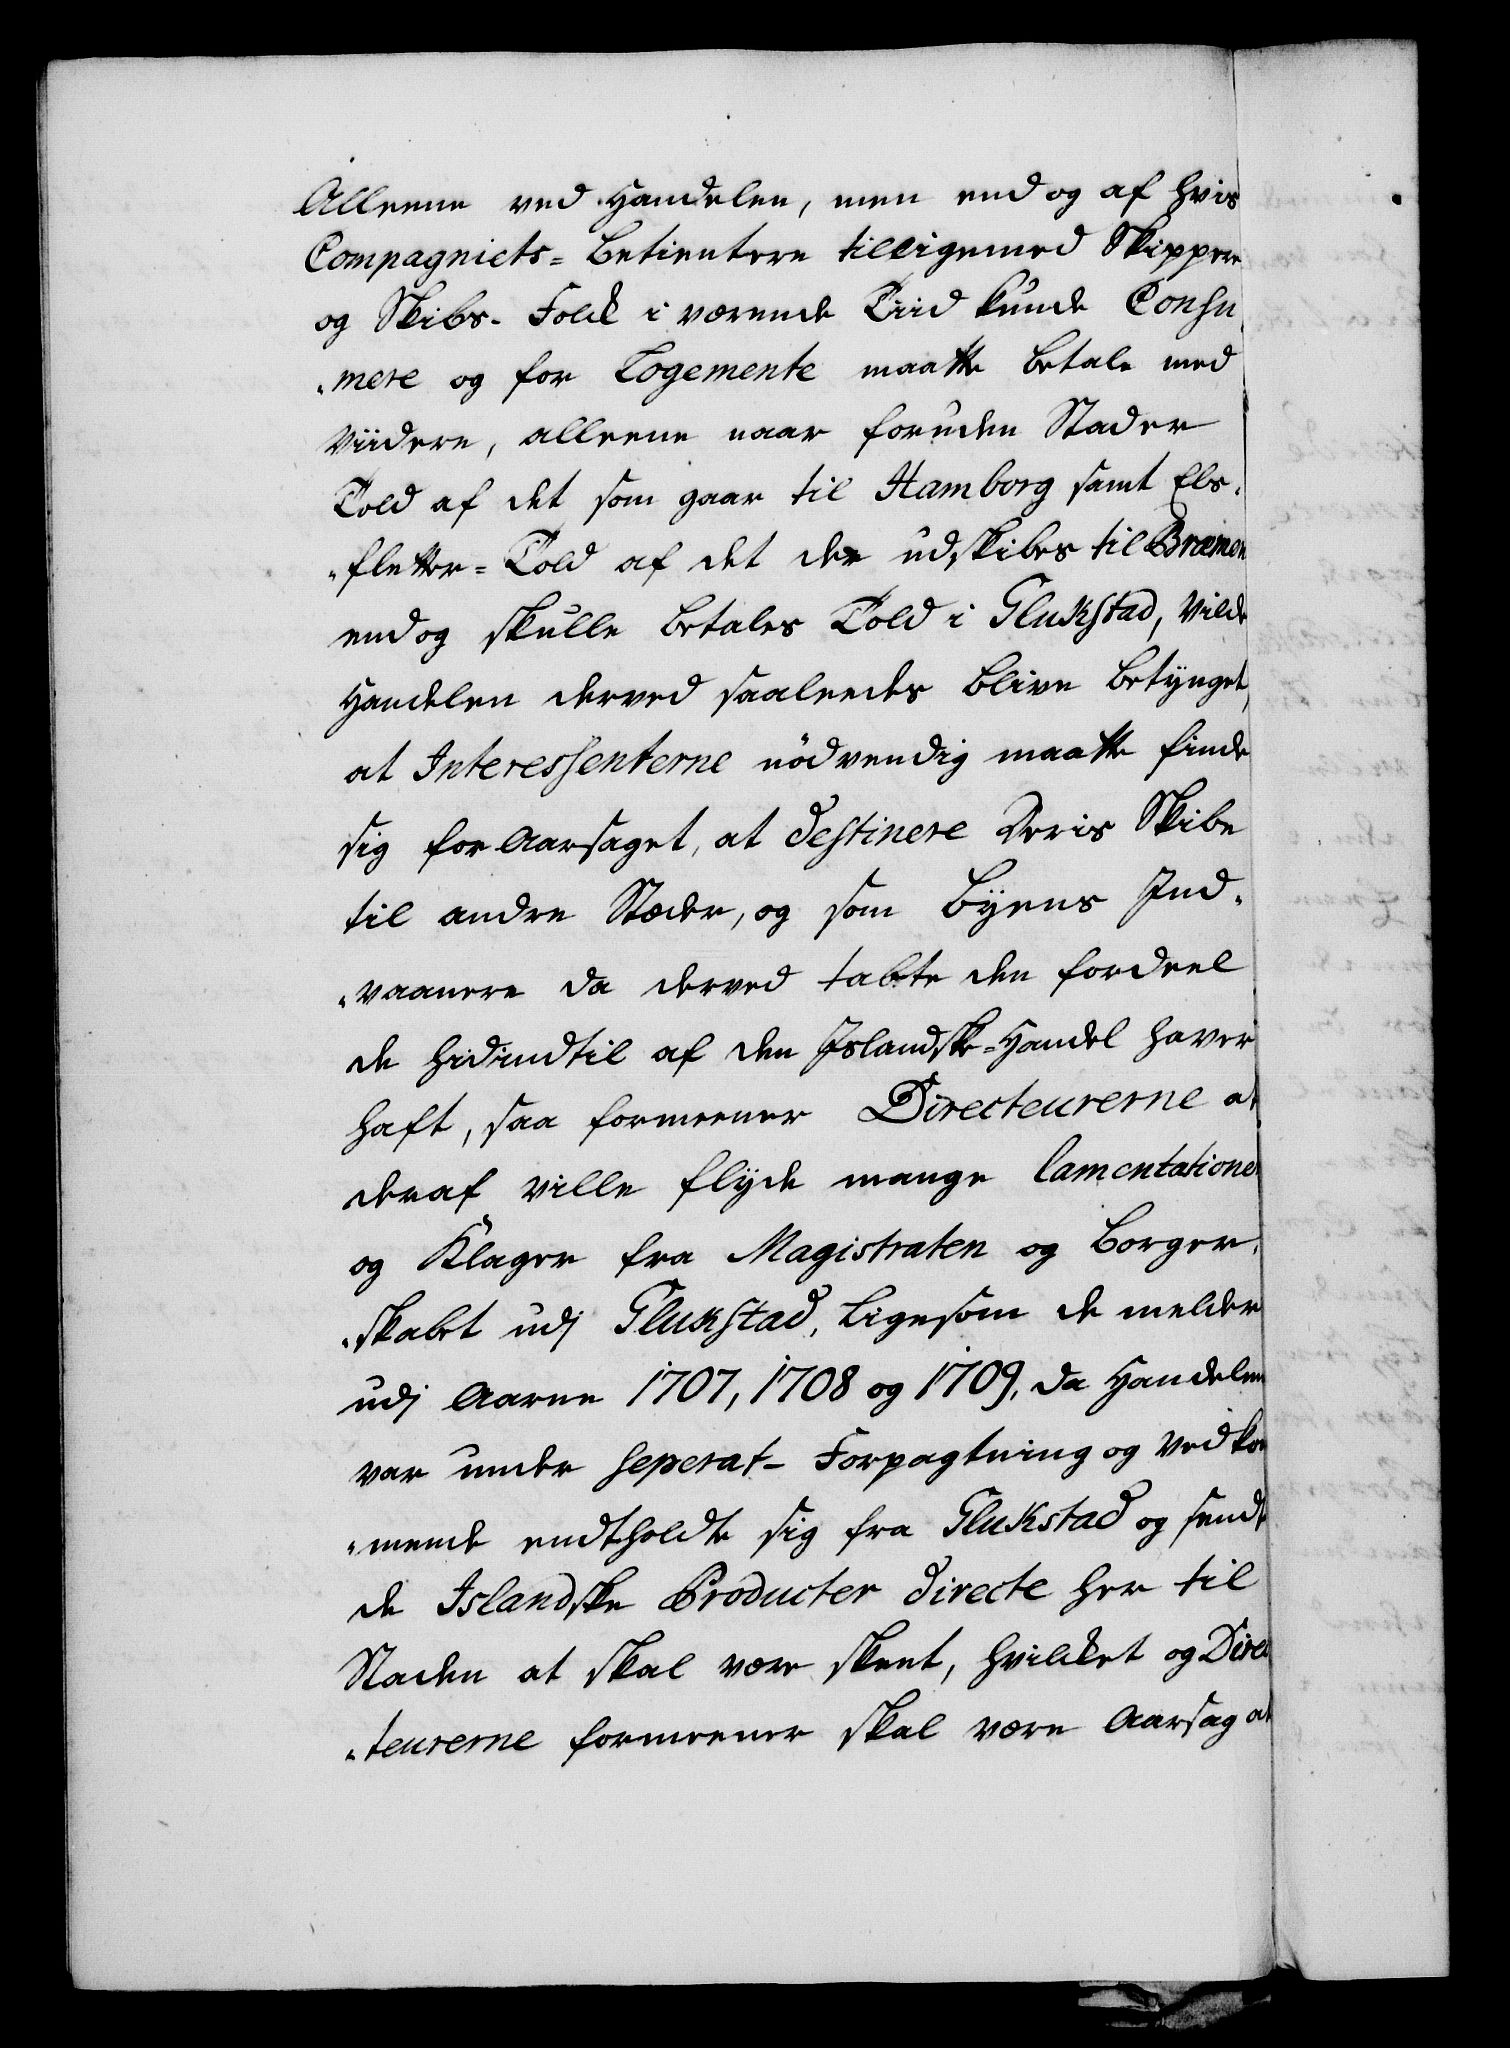 Alleene ved Handelen, men end og af hvis
Compagniets= Betientere tilligemed Skippere
og Skibs- Folk i værende Tiid kunde Consu
"mere og for Logemente maatte betale med
viidere, alleene naar foruden Stader
Told af det som gaar til Hamborg samt Els-
"fletter= Told af det der udskibes til Bræmen
endog skulle betales Told i Glukstad, vilde
Handelen derved saaleedes blive betynget,
at Interessenterne nödvendig maatte finde
sig for Aarsaget, at destinere Deris Skibe
til andre Stæder, og som Byens Ind-
"vaanere da derved tabte den fordeel
de hidindtil af den Islandske=Handel haver
haft, saa formeener Directeurerne at
deraf ville flyde mange lamentationer
og Klager fra Magistraten og Borger-
"skabet udj Glukstad, ligesom de melder
udj Aarene 1707, 1708 og 1709, da Handelen
var under seperat- Forpagtning og Vedkom
"mende endtholdte sig fra Glukstad og sendte
de Islandske Producter directe her til
Staden at skal være skeet, hvilket og Direc
"teurerne formeener skal være Aarsag at